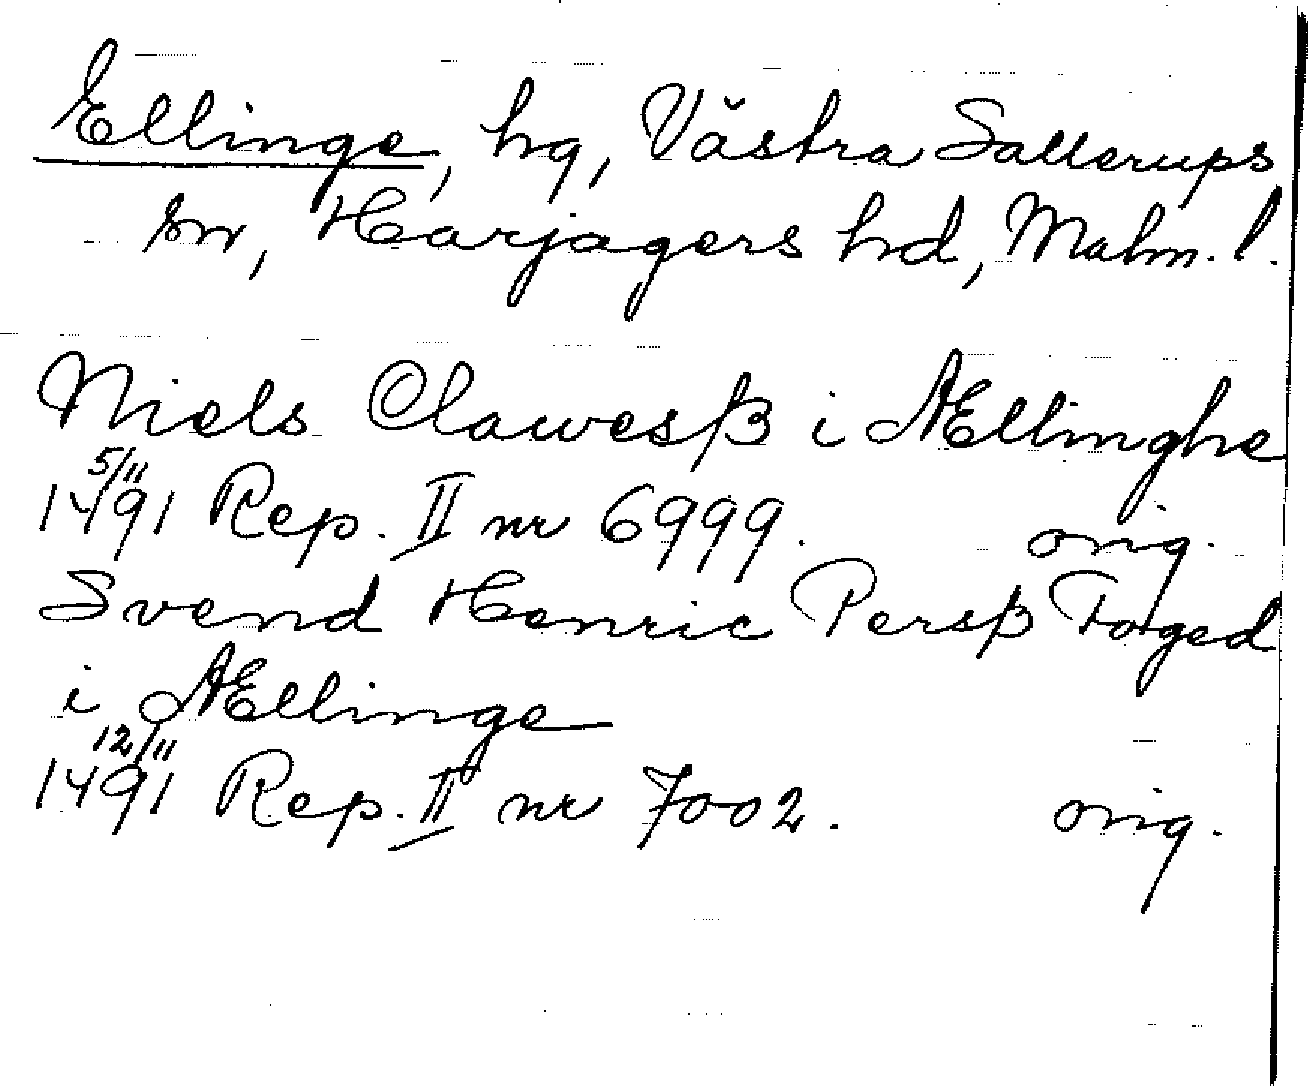 Ellinge, hg, Västra Sallerups
sn, Harjagers hd, Malm. l.
Niels Clawesß i Ællinghe
5/11
1491 Rep. II nr 6999. orig.
Svend Henric Persß Foged
i Ællinge
12/11
1491 Rep. II nr 7002. orig.